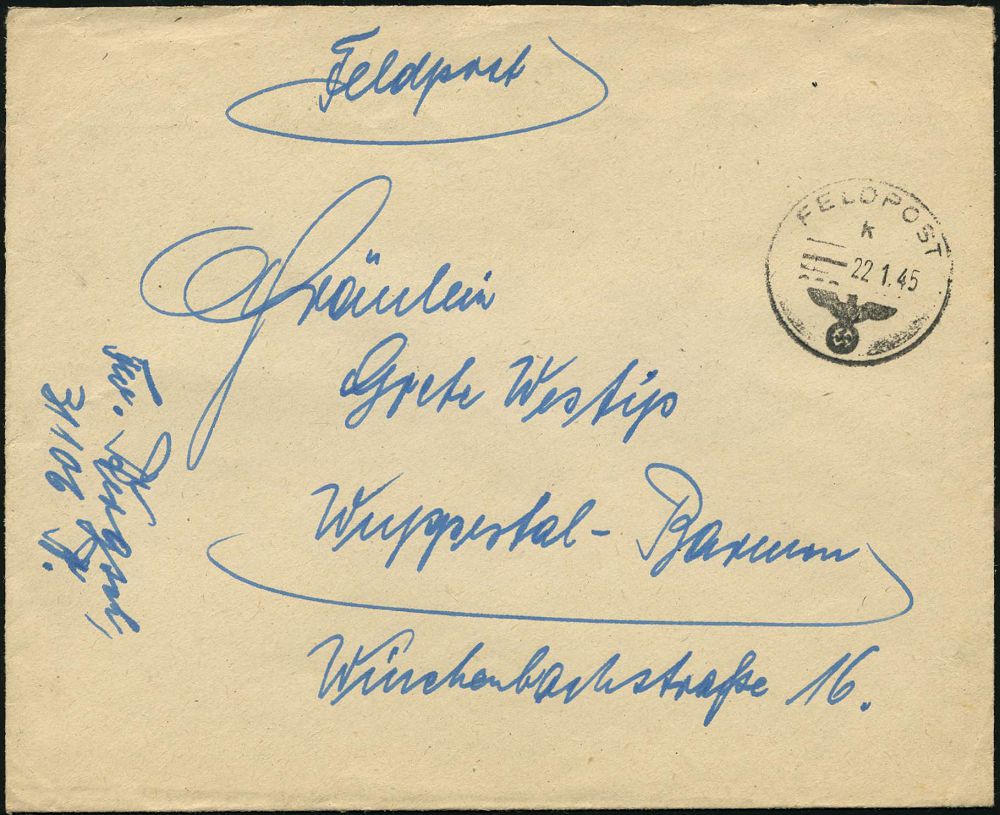 Feldpost
FELDPOST
k
22.1.45
Fräulein
Grete Westip
Wuppertal-Barmen
Winchenbachstraße 16.
31106